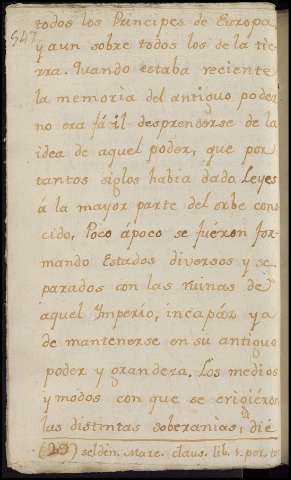 todos los Principes de Europa,
547
y aun sobre todos los de la tie
rra. Quando estaba reciente
la memoria del antiguo poder
no era fácil desprenderse de la
idea de aquel poder, que por
tantos siglos habia dado Leyes
á la mayor parte del orbe cono
cido, Poco ápoco se fueron for
mando Estados diversos y se
parados con las ruinas de
aquel Imperio, incapáz ya
de mantenerse en su antiguo
poder y grandeza. Los medios
y modos con que se erigiéron
las distintas soberanias, dié
(20) selden. Mare. claus. lib. 1. par.